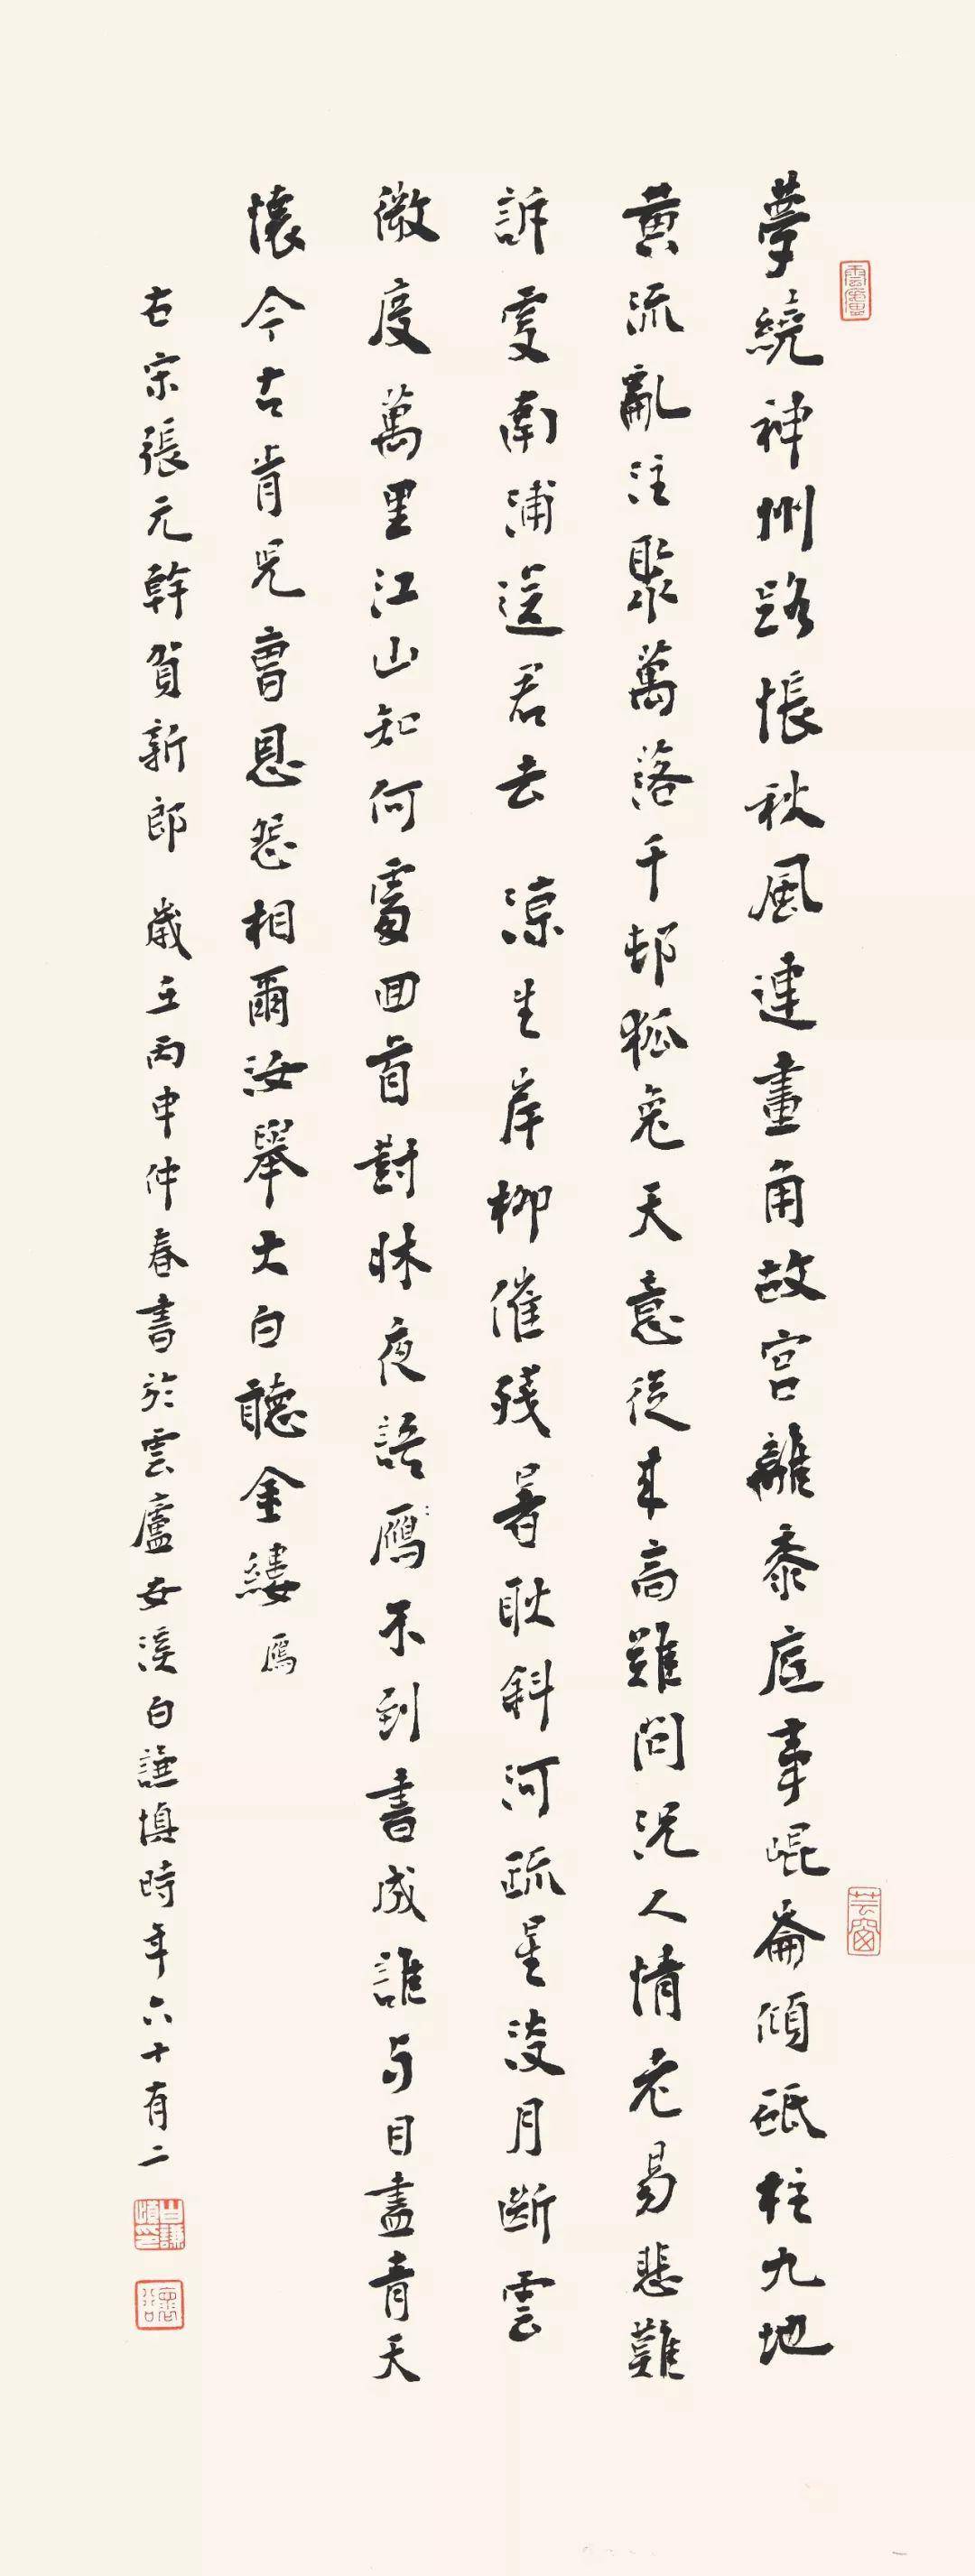 夢繞神州路悵秋風連畫角故宮離黍底事崐崙傾砥柱九地
黃流亂注聚萬落千邨狐兔天意從来高難問況人情老易悲難
訴更南浦送君去 涼生岸柳催殘暑耿斜河疏星淡月斷雲
微度萬里江山知何處回首對牀夜語鴈不到書成誰与目盡青天
懷今古肯兒曹恩怨相爾汝舉大白聽金縷 鴈
右宋張元幹賀新郎 歲在丙申仲春書於雲廬安溪白謙慎時年六十有二
雲廬
芸窗
白謙慎印